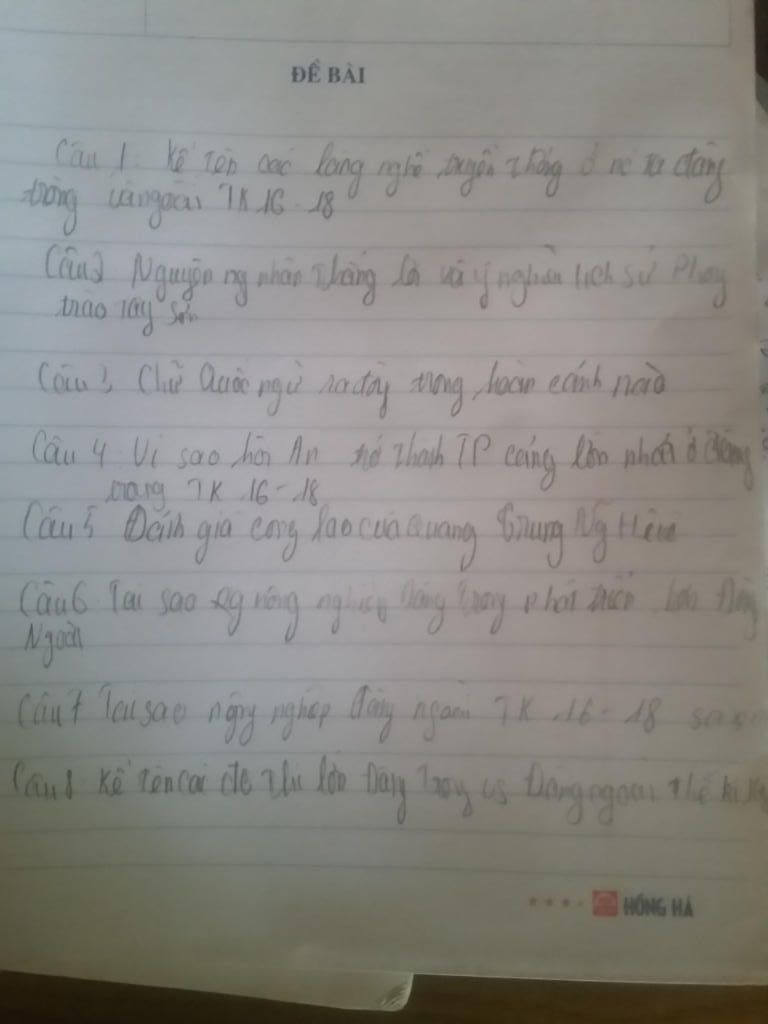 ĐỀ BÀI
Câu 1 Kể tên các làng nghề truyền thống ở nc ta đàng
trong và ngoài TK 16-18
Câu 2 Nguyên ng nhân thắng lợi và ý nghĩa lịch sử Phong
trào Tây Sơn
Câu 3 Chữ Quốc ngữ ra đời trong hoàn cảnh nào
Câu 4 Vì sao hội An trở thành TP cảng lớn nhất ở Đàng
trong TK 16-18
Câu 5 Đánh giá công lao của Quang Trung Ng Huệ
Câu 6 Tại sao nông nghiệp Đàng Trong phát triển hơn Đàng
Ngoài
Câu 7 Tại sao nông nghiệp Đàng ngoài TK 16-18
Câu 8 Kể tên các đô thị lớn Đàng Trong Đàng ngoài thế kỉ
HỒNG HÀ